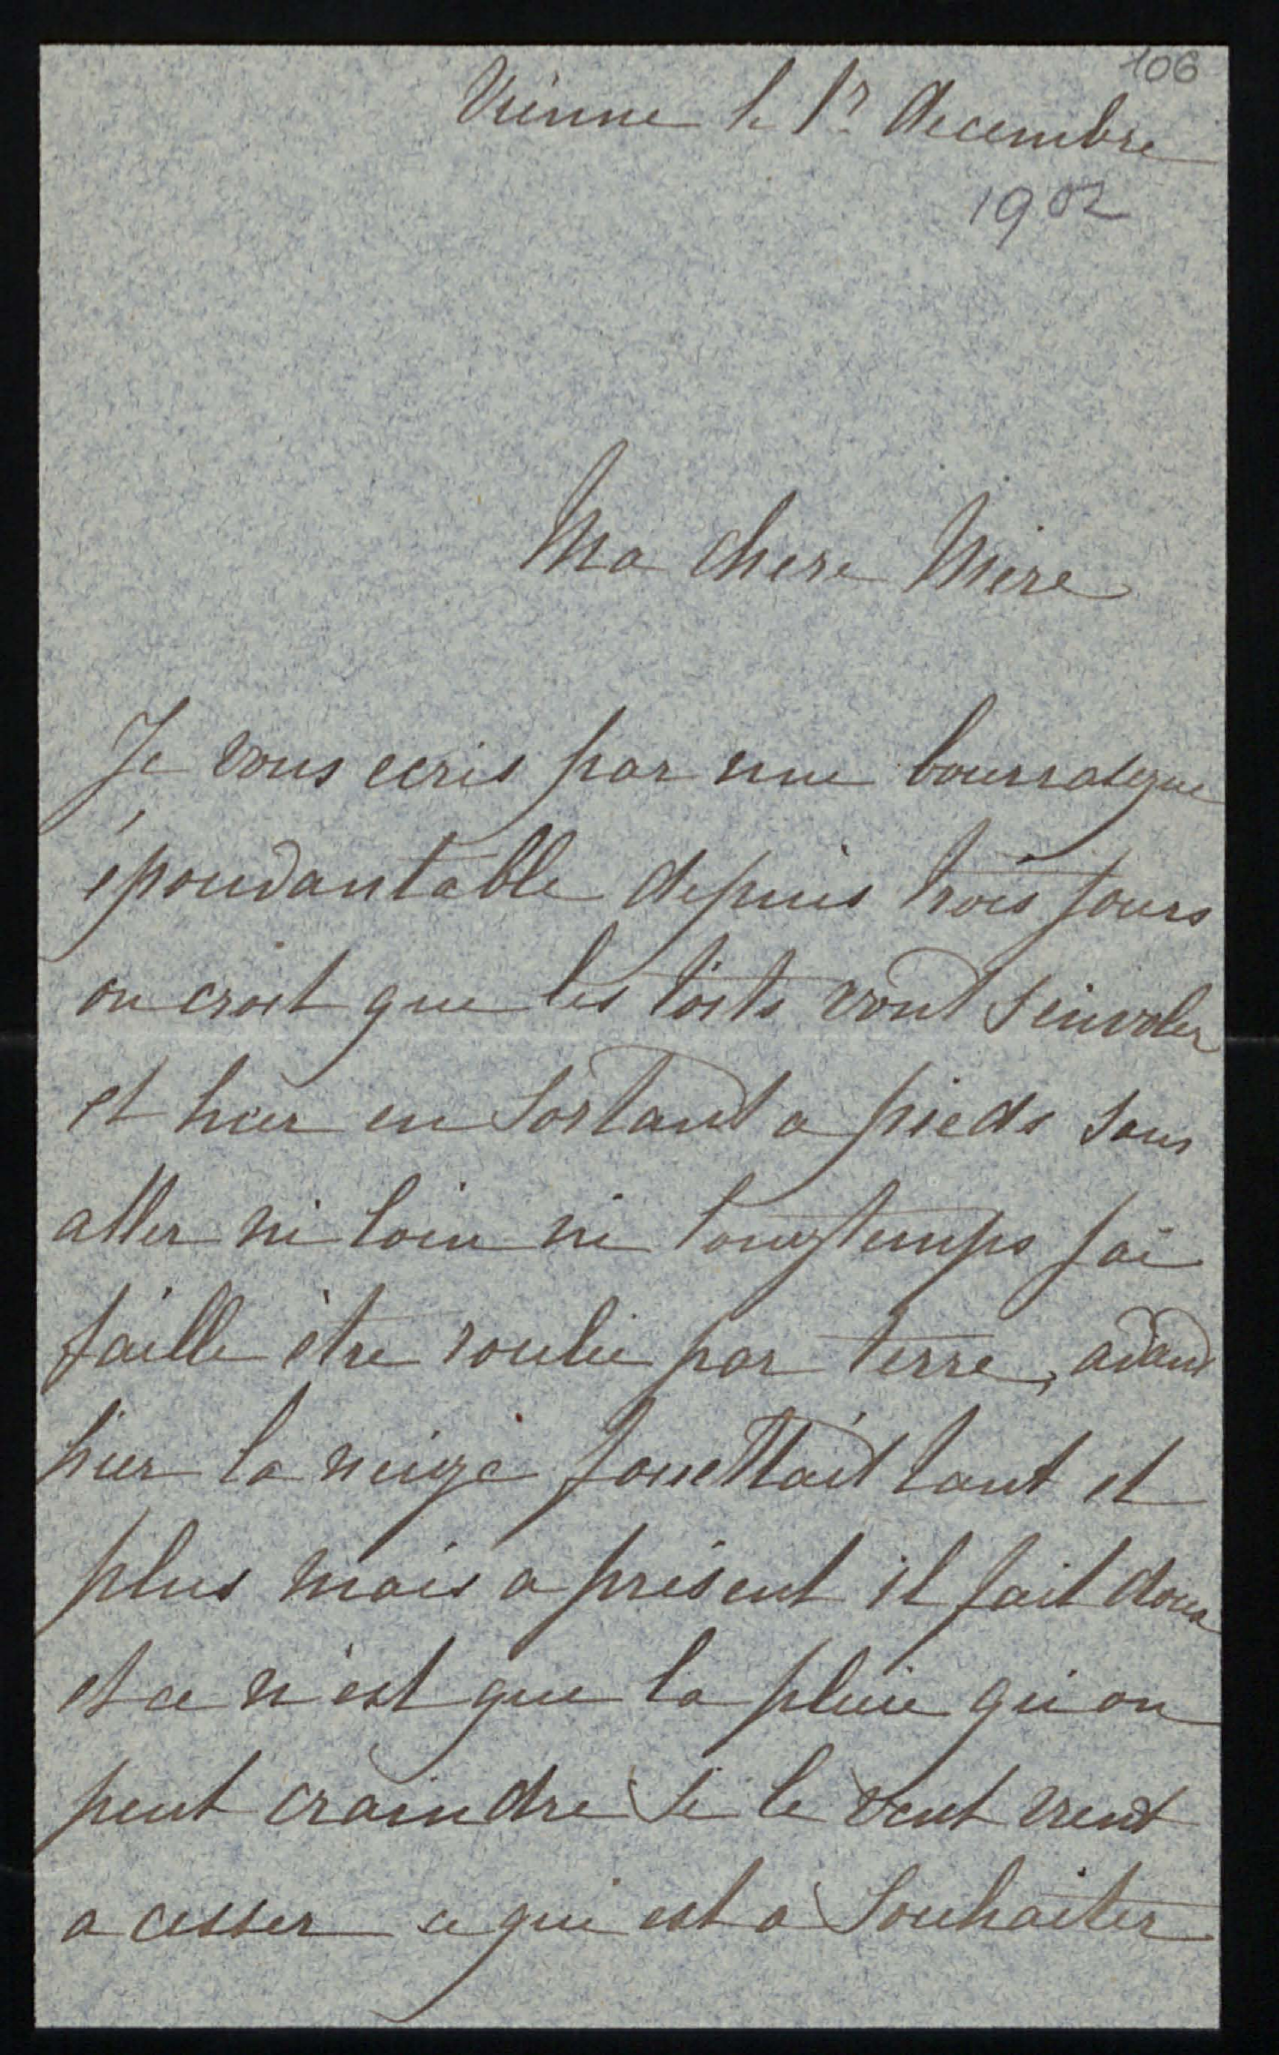 106
Vienne le 17 decembre
1902
Ma chere Mere
Je vous ecris par une bourrasque
épouvantable depuis trois jours
on croit que les toits vont s'envoler
et hier en sortant a pieds sans
aller ni loin ni longtemps j'ai
faille être roulée par terre, avant
hier la neige fouettait tant et
plus mais a présent il fait doux
et ce n'est que la pluie qu'on
peut craindre si le vent vient
a cesser ce qui est a souhaiter